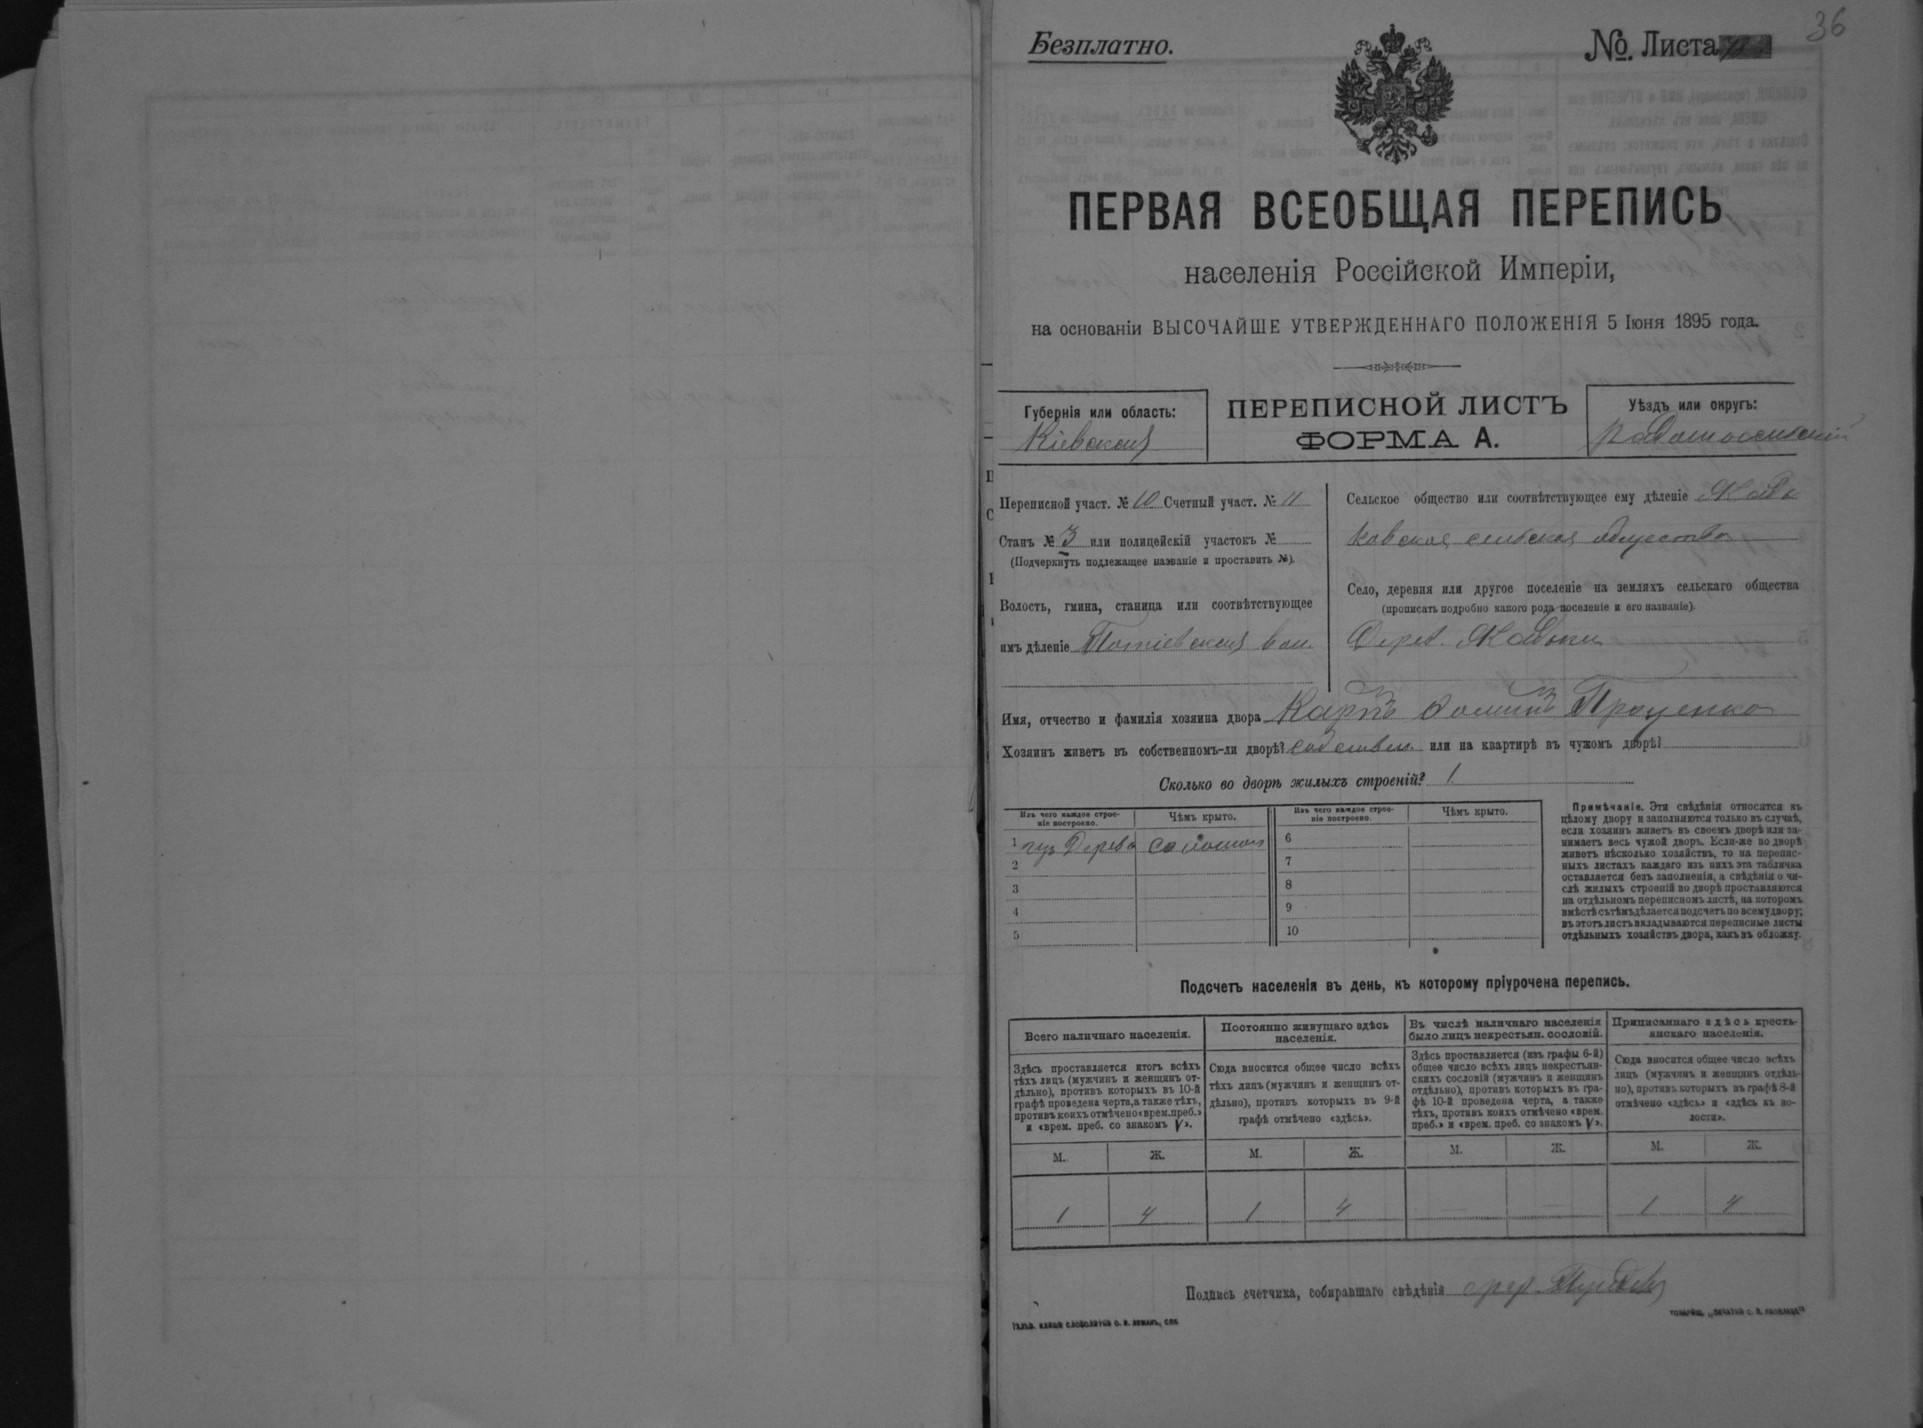 36
Безплатно.
№ Листа
ПЕРВАЯ ВСЕОБЩАЯ ПЕРЕПИСЬ
населенія Россійской Имперіи,
на основаніи ВЫСОЧАЙШЕ УТВЕРЖДЕННАГО ПОЛОЖЕНІЯ 5 Іюня 1895 года.
Губернія или область:
Кіевская
ПЕРЕПИСНОЙ ЛИСТЪ
ФОРМА А.
Уѣздъ или округъ:
Радомысльскій
Переписной участ. № 10 Счетный участ. № 11
Станъ № 3 или полицейскій участокъ №
(Подчеркнуть подлежащее названіе и проставить №).
Волость, гмина, станица или соотвѣтствующее
имъ дѣленіе Потіевская вол.
Сельское общество или соотвѣтствующее ему дѣленіе
Село, деревня или другое поселеніе на земляхъ сельскаго общества
(прописать подробно какого рода поселеніе и его названіе).
Дерев.
Имя, отчество и фамилія хозяина двора Карпъ Проценко
Хозяинъ живетъ въ собственномъ-ли дворѣ? собствен. или на квартирѣ въ чужомъ дворѣ?
Сколько во дворѣ жилыхъ строеній? 1
Изъ чего каждое строе-
ніе построено.
Чѣмъ крыто.
Изъ чего каждое строе-
ніе построено.
Чѣмъ крыто.
1 изъ Дерева соломой
2
3
4
5
6
7
8
9
10
Примѣчаніе. Эти свѣдѣнія относятся къ
цѣлому двору и заполняются только въ случаѣ,
если хозяинъ живетъ въ своемъ дворѣ или за-
нимаетъ весь чужой дворъ. Если-же во дворѣ
живетъ нѣсколько хозяйствъ, то на перепис-
ныхъ листахъ каждаго изъ нихъ эта табличка
оставляется безъ заполненія, а свѣдѣнія о чи-
слѣ жилыхъ строеній во дворѣ проставляются
на отдѣльномъ переписномъ листѣ, на которомъ
вмѣстѣ съ тѣмъ дѣлается подсчетъ по всему двору;
въ этотъ листъ вкладываются переписные листы
отдѣльныхъ хозяйствъ двора, какъ въ обложку.
Подсчетъ населенія въ день, къ которому пріурочена перепись.
Всего наличнаго населенія.
Здѣсь проставляется итогъ всѣхъ
тѣхъ лицъ (мужчинъ и женщинъ от-
дѣльно), противъ которыхъ въ 10-й
графѣ проведена черта, а также тѣхъ,
противъ коихъ отмѣчено «врем. преб.»
и «врем. преб. со знакомъ V».
Постоянно живущаго здѣсь
населенія.
Сюда вносится общее число всѣхъ
тѣхъ лицъ (мужчинъ и женщинъ от-
дѣльно), противъ которыхъ въ 9-й
графѣ отмѣчено «здѣсь».
Въ числѣ наличнаго населенія
было лицъ некрестьян. сословій.
Здѣсь проставляется (изъ графы 6-й)
общее число всѣхъ лицъ некрестьян-
скихъ сословій (мужчинъ и женщинъ
отдѣльно), противъ которыхъ въ гра-
фѣ 10-й проведена черта, а также
тѣхъ, противъ коихъ отмѣчено «врем.
преб.» и «врем. преб. со знакомъ V».
Приписаннаго здѣсь кресть-
янскаго населенія.
Сюда вносится общее число всѣхъ
лицъ (мужчинъ и женщинъ отдѣль-
но), противъ которыхъ въ графѣ 8-й
отмѣчено «здѣсь» и «здѣсь къ во-
лости».
М. Ж. М. Ж. М. Ж. М. Ж.
1 4 1 4 — — 1 4
Подпись счетчика, собиравшаго свѣдѣнія